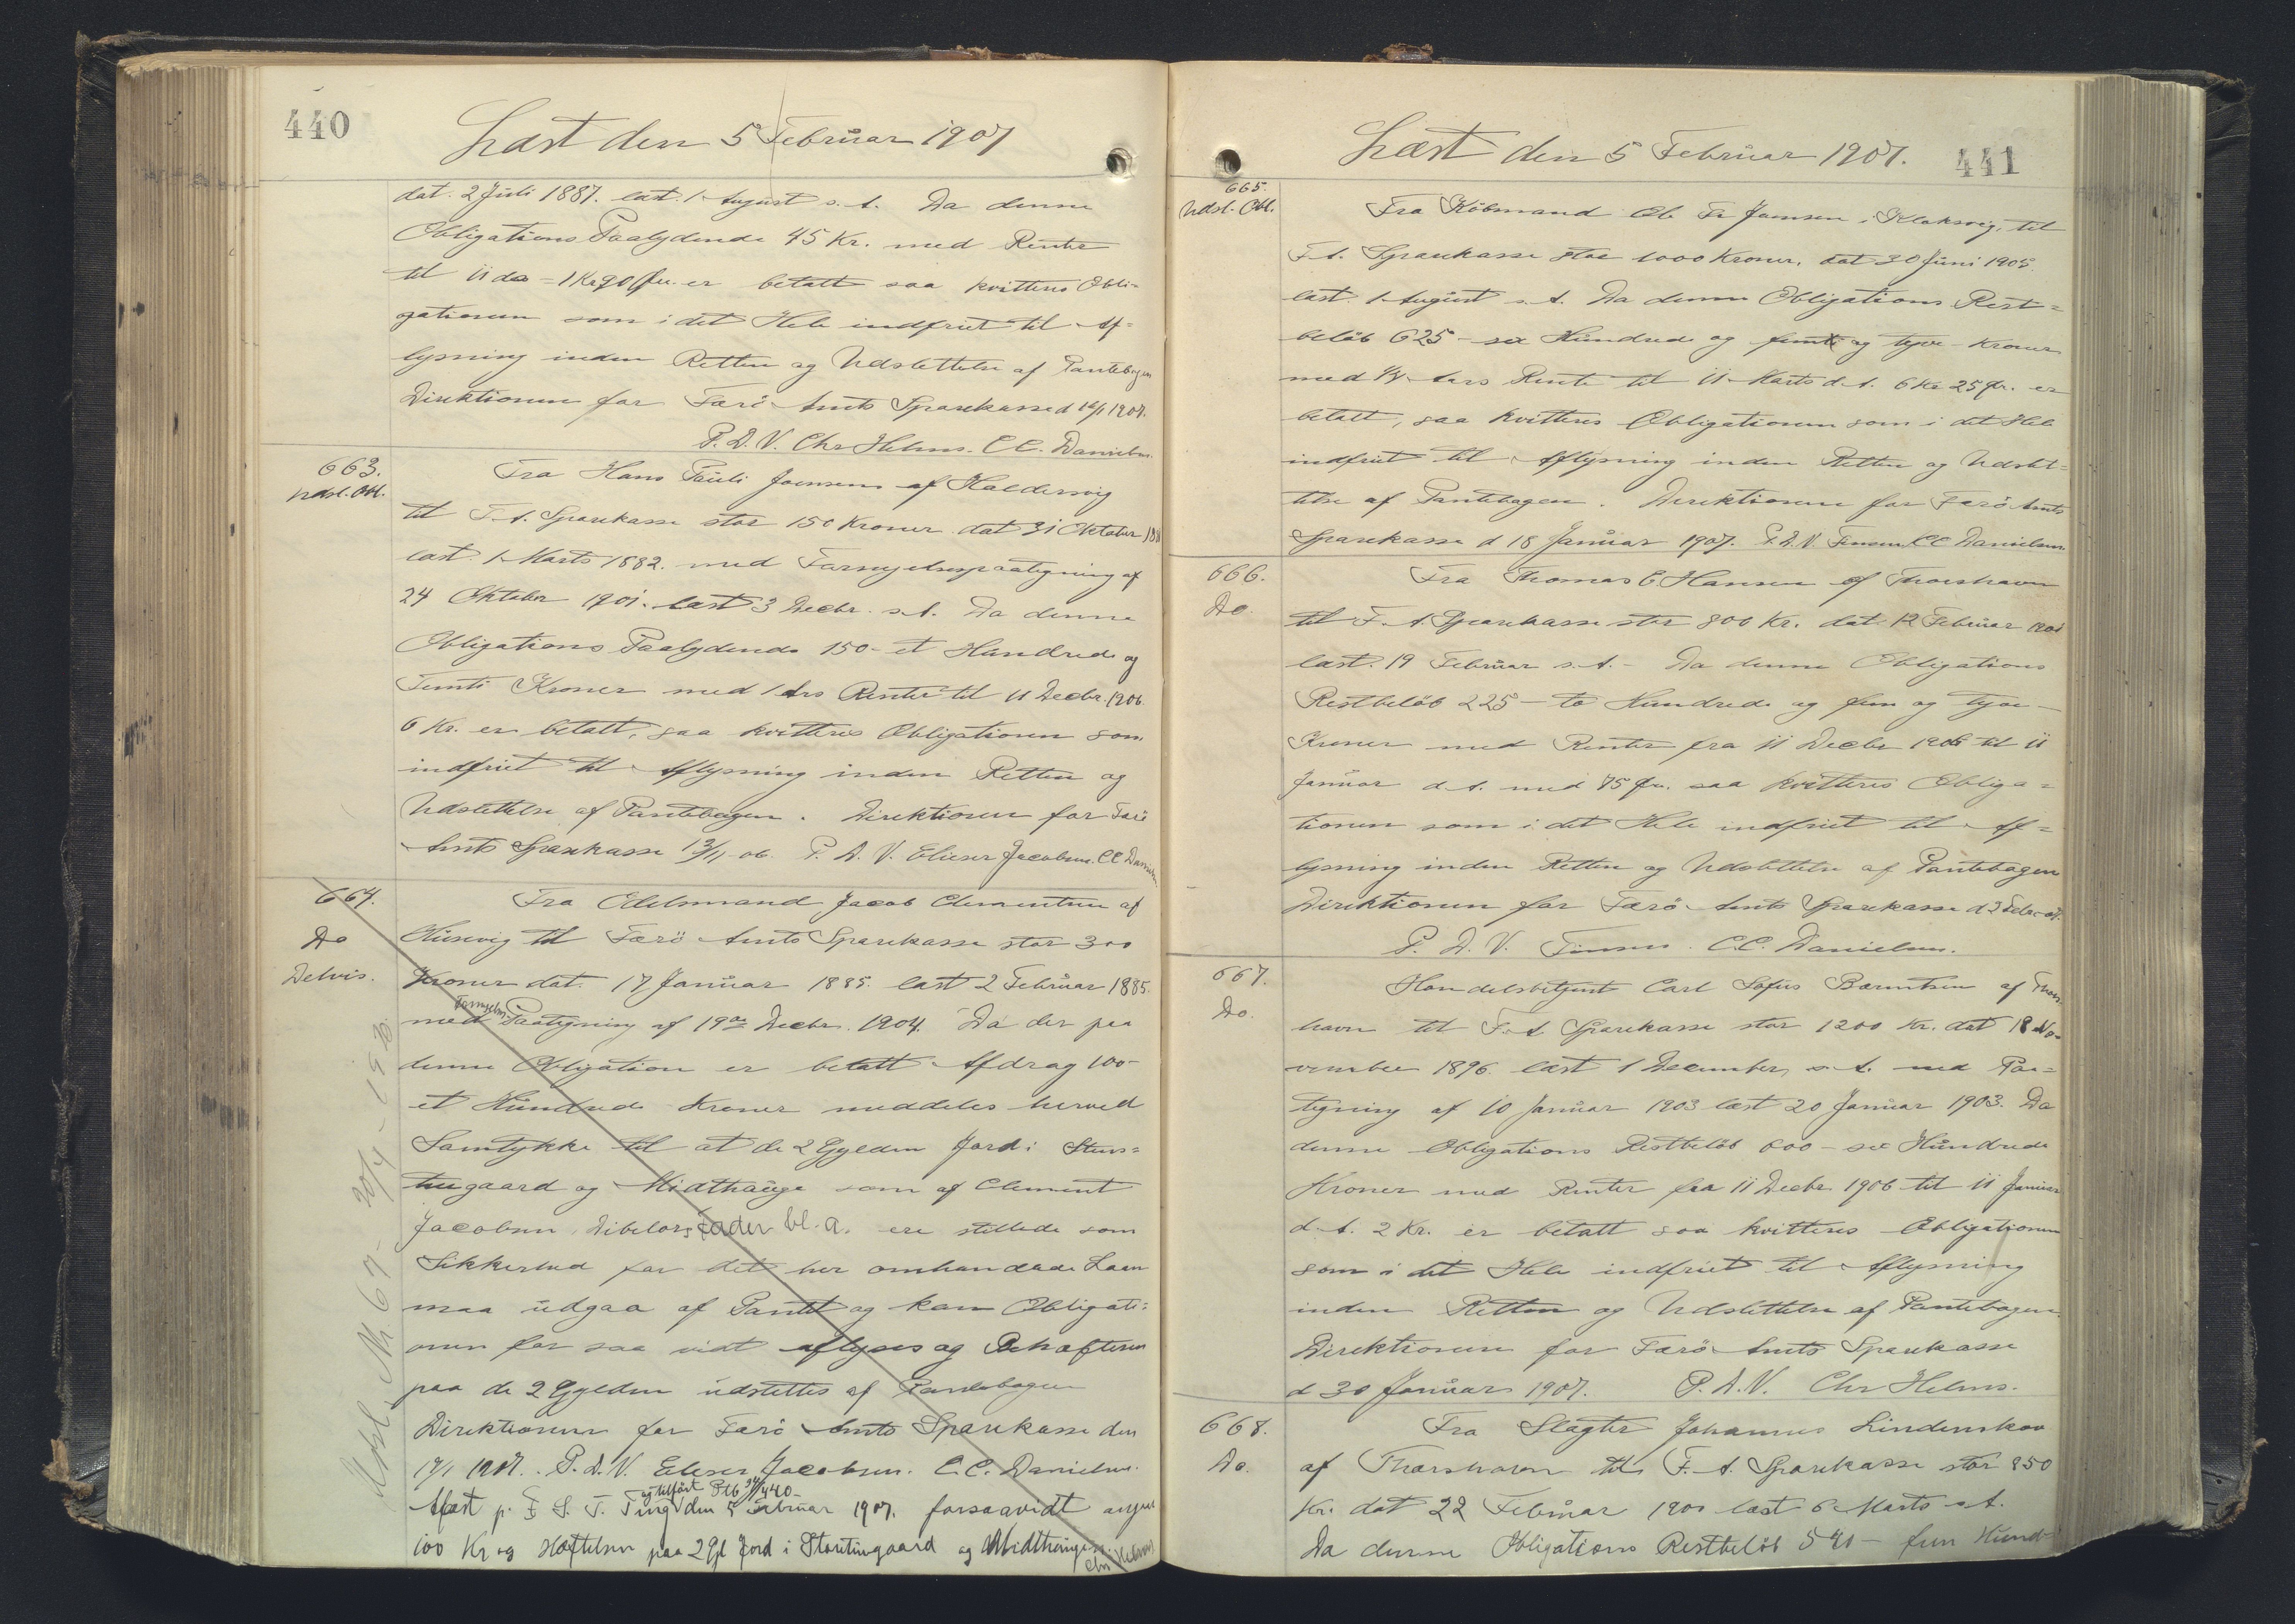 440
Læst den 5 Februar 1907
dat. 2 Juli 1887. læst. 1 August s. A. Da denne
Obligations Paalydende 45 Kr. med Rente
til 11 ds = 1 Kr 90 Øre er betalt saa kvitteres Obli=
gationen som i det Hele indfriet til Af=
lysning inden Retten og Udslettelse af Pantebogen
Direktionen for Færö Amts Sparekasse d 16/1 1907.
P. D. V. Chr Helms. C C. Danielsen.
663.
Udsl. Obl.
Fra Hans Pauli Joensen af Haldersvig
til F. A. Sparekasse stor 150 Kroner dat 31 Oktober 1881
læst. 1 Marts 1882. med Fornyelsespaategning af
24 Oktober 1901. læst 3 Decbr. s. A. Da denne
Obligations Paalydende 150 - et Hundrede og
Femti Kroner med 1 Ars Renter til 11 Decbr. 1906.
6 Kr. er betalt, saa kvitteres Obligationen som
indfriet til Aflysning inden Retten og
Udslettelse af Pantebogen. Direktionen for Færö
Amts Sparekasse 13/11-06. P. D. V. Elieser Jacobsen. CC Danielsen
664.
Do
Delvis.
Fra Odelsmand Jacob Clementsen af
Husevig til Færö Amts Sparekasse stor 300
Kroner dat. 17 Januar 1885. læst 2 Februar 1885.
med Fornyelses Paategning af 19de Decbr. 1904. Da der paa
denne Obligation er betalt Afdrag 100 -
et Hundrede Kroner meddeles herved
Samtykke til at de 2 Gylden Jord i Sturs=
tuegaard og Midthauge som af Clement
Jacobsen, Debitors Fader bl. a. ere stillede som
Sikkerhed for det her omhandlede Laan
maa udgaa af Pantet og kan Obligati=
onen for saa vidt aflyses og Behæftelsen
paa de 2 Gylden udslettes af Pantebogen
Direktionen for Færö Amts Sparekasse den
17/1 1907. P. D. V. Elieser Jacobsen. C. C. Danielsen.
Aflæst p. F S. T. Ting og tilført Ptb 440 - den 5 Februar 1907. forsaavidt angaar
100 Kr og Hæftelsen paa 2 Gl Jord i Storstuegaard og Midthauge.
Chr Helms
Udsl. M. 67 - 20/4 - 1920.
441
Læst den 5 Februar 1907.
665.
Udsl. Obl.
Fra Købmand Ob Fr Joensen i Klaksvig, til
F. A. Sparekasse stor 1000 Kroner. dat 30 Juni 1905.
læst. 1 August s. A. Da denne Obligations Rest=
beløb 625 - sex Hundrede og fem og tyve - Kroner
med 1/4 Aars Rente til 11 Marts d. A. 6 Kr 25 Øre. er
betalt, saa kvitteres Obligationen som i det Hele
indfriet til Aflysning inden Retten og Udslet=
telse af Pantebogen. Direktionen for Færö Amts
Sparekasse d 18 Januar 1907. P. D. V. Finsen CC Danielsen
666.
Do.
Fra Thomas C Hansen af Thorshavn
til F. A. Sparekasse stor 800 Kr. dat. 12 Februar 1901
læst. 19 Februar s. A. - Da denne Obligations
Restbeløb 225 - to Hundrede og fem og tyve -
Kroner med Renter fra 11 Decbr 1906 til 11
Januar d. A. med 75 Øre. saa kvitteres Obliga=
tionen som i det Hele indfriet til Af=
lysning inden Retten og Udslettelse af Pantebogen
Direktionen for Færö Amts Sparekasse d 2 Febr. 07.
P. D. V. Finsen. C.C. Danielsen.
667.
Do.
Handelsbetjent Carl Sofus Bærentsen af Thors
havn til F. A. Sparekasse stor 1200 Kr. dat 18 No=
vember 1896. læst 1 December s. A. med Paa=
tegning af 10 Januar 1903 læst 20 Januar 1903. Da
denne Obligations Restbeløb 600 - sex Hundrede
Kroner med Renter fra 11 Decbr 1906 til 11 Januar
d. A. 2 Kr. er betalt saa kvitteres Obligationen
som i det Hele indfriet til Aflysning
inden Retten og Udslettelse af Pantebogen.
Direktionen for Færö Amts Sparekasse
d 30 Januar 1907. P. D. V. Chr Helms.
668.
Do.
Fra Slagter Johannes Lindenskov
af Thorshavn til F. A. Sparekasse stor 850
Kr. dat 22 Februar 1900 læst 6 Marts s. A.
Da denne Obligations Restbeløb 540 - fem Hund-